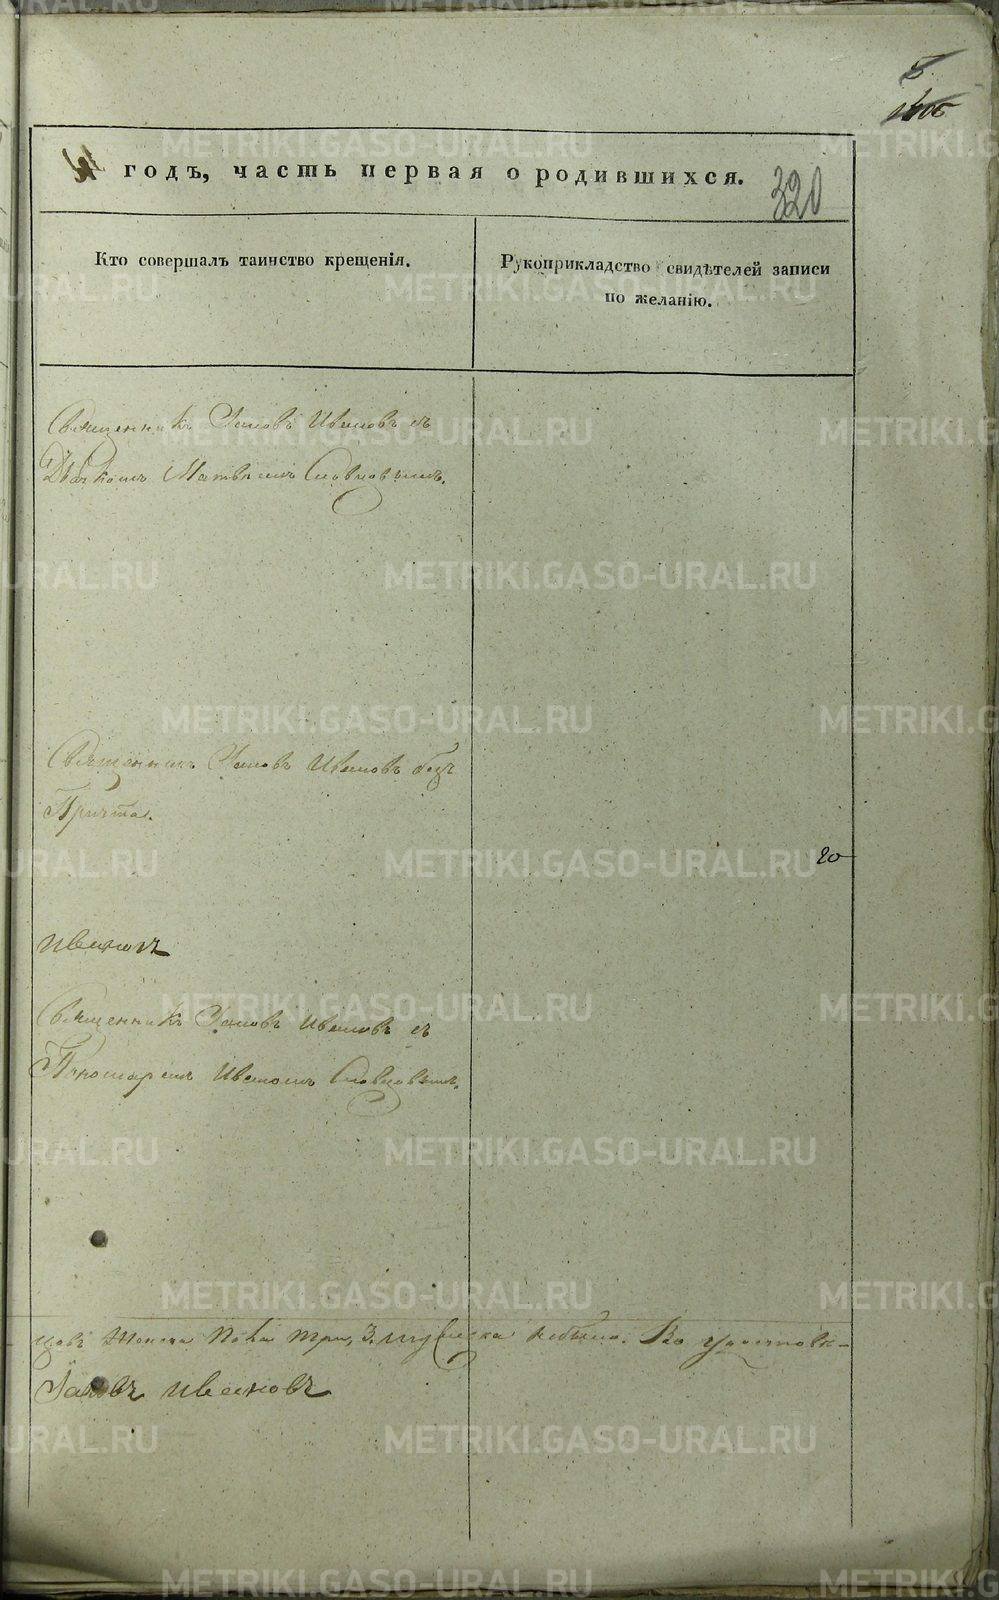 320
годъ, часть первая о родившихся.
Кто совершалъ таинство крещенія.
Рукоприкладство свидѣтелей записи
по желанію.
Священникъ Іаковъ Ивановъ съ
Дьячкомъ Матвѣемъ Словцовымъ.
Священникъ Іаковъ Ивановъ безъ
Причта.
20
Ивановъ
Священникъ Іаковъ Ивановъ съ
Пономаремъ Иваномъ Словцовымъ.
женска пола три, 3. мужеска небыло. Во
Іаковъ Ивановъ
METRIKI.GASO-URAL.RU